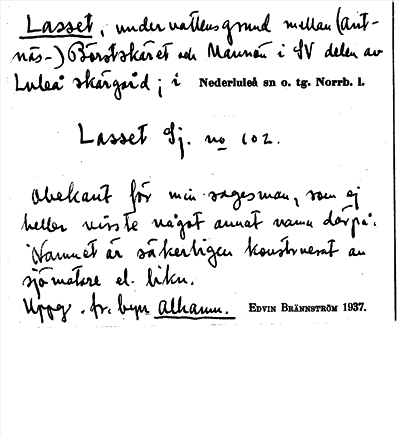 Lasset, undervattensgrund mellan (Ant-
näs-) Börstskäret och Mannön i SV delen av
Luleå skärgård; i Nederluleå sn o. tg. Norrb. l.
Lasset Sj. no 102.
Obekant för min sagesman, som ej
heller visste något annat namn därpå.
Namnet är säkerligen konstruerat av
sjömätare el. likn.
Uppg. fr. byn Alhamn. EDVIN BRÄNNSTRÖM 1937.